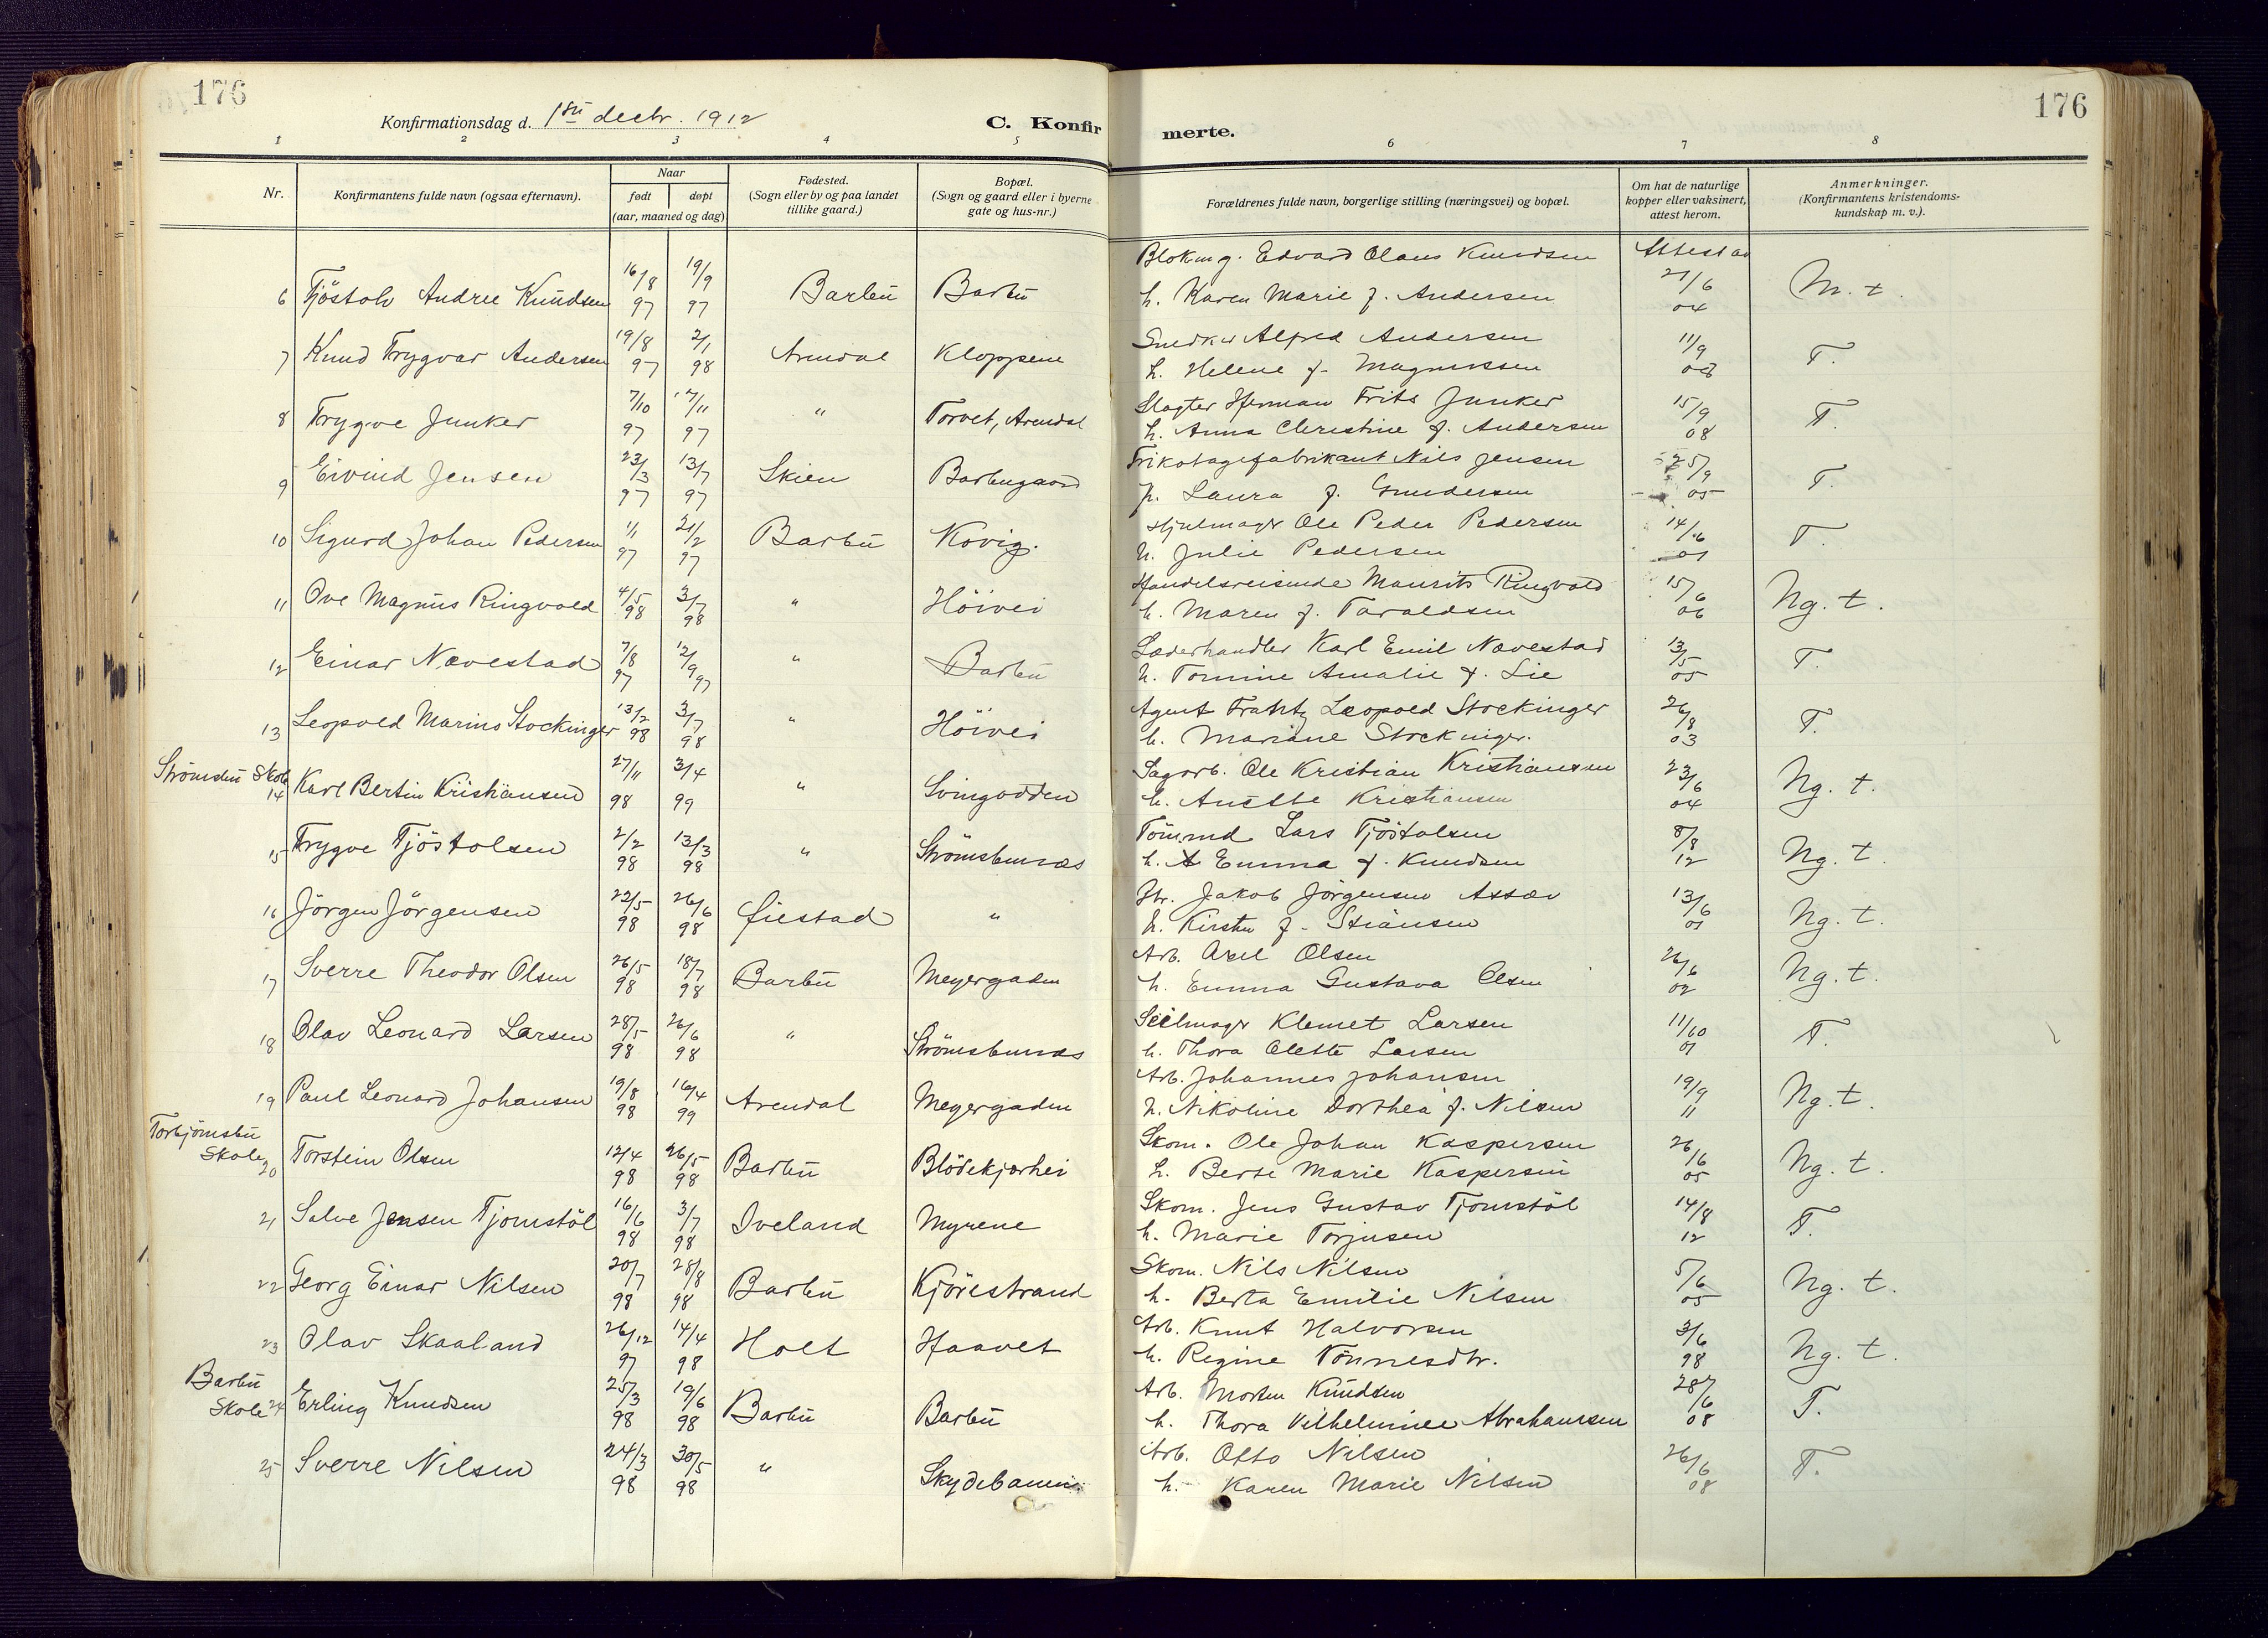 176
176
Konfirmationsdag d. 1ste decbr. 1912
C. Konfirmerte.
1 2 3 4 5 6 7 8
Nr.
Konfirmantens fulde navn (ogsaa efternavn).
Naar
født
døpt
(aar, maaned og dag)
Fødested.
(Sogn eller by og paa landet
tillike gaard.)
Bopæl.
(Sogn og gaard eller i byerne
gate og hus-nr.)
Forældrenes fulde navn, borgerlige stilling (næringsvei) og bopæl.
Om hat de naturlige
kopper eller vaksinert,
attest herom.
Anmerkninger.
(Konfirmantens kristendoms-
kundskap m. v.).
Blokmg. Edvard Olaus Knudsen Attest av
6 Tjöstolv Andree Knudsen 16/8 97 19/9 97 Barbu Barbu h. Karen Marie f. Andersen 21/6 04 M. t.
Snedker Alfred Andersen
7 Knud Trygvar Andersen 19/8 97 2/1 98 Arendal Kloppene h. Helene f. Magnussen 11/9 08 T.
Slagter Herman Frits Junker
8 Trygve Junker 7/10 97 17/11 97 " Torvet, Arendal h. Anna Christine f. Andersen 15/9 08 T.
Trikotagefabrikant Nils Jensen
9 Eivind Jensen 23/3 97 13/7 97 Skien Barbugaard h. Laura f. Gundersen 25/9 05 T.
Hjulmager Ole Peder Pedersen
10 Sigurd Johan Pedersen 1/1 97 21/2 97 Barbu Kovig. h. Julie Pedersen 14/6 01 T.
Handelsreisende Maurits Ringvold
11 Ove Magnus Ringvold 4/5 98 3/7 98 " Höivei h. Maren f. Taraldsen 15/6 06 Ng. t.
Læderhandler Karl Emil Nævestad
12 Einar Nævestad 7/8 97 12/9 97 " Barbu h. Tomine Amalie f. Lie 13/5 05 T.
Agent Frantz Leopold Stockinger
13 Leopold Marino Stockinger 13/2 98 3/7 98 " Höivei h. Mariane Stockinger. 26/8 03 T.
Strömsbu Skole
Sagarb. Ole Kristian Kristiansen
14 Karl Bertin Kristiansen 27/11 98 3/4 99 " Svingodden h. Anette Kristiansen 23/6 04 Ng. t.
Tömmd Lars Tjöstolsen
15 Trygve Tjöstolsen 2/2 98 13/3 98 " Strömsbunæs h. Emma f. Knudsen 8/8 12 Ng. t.
Jakob Jörgensen Assæv
16 Jörgen Jörgensen 22/5 98 26/6 98 Öiestad " h. Kirsten f. Stiansen 13/6 01 Ng. t.
Arb. Axel Olsen
17 Sverre Theodor Olsen 26/5 98 18/7 98 Barbu Meyergaden h. Emma Gustava Olsen 26/6 02 Ng. t.
Seilmager Klemet Larsen
18 Olav Leonard Larsen 28/5 98 26/6 98 " Strömsbunæs h. Thora Olette Larsen 11/10 01 T.
Arb. Johannes Johansen
19 Paul Leonard Johansen 19/8 98 16/4 99 Arendal Meyergaden h. Nikoline Dorthea f. Nilsen 19/9 11 Ng. t.
Torbjörnsbu
Skole
Skom. Ole Johan Kaspersen
20 Torstein Olsen 12/4 98 26/5 98 Barbu Blödekjærhei h. Berte Marie Kaspersen 26/6 05 Ng. t.
Skom. Jens Gustav Tjomstöl
21 Salve Jensen Tjomstöl 16/6 98 3/7 98 Iveland Myrene h. Marie Torjusen 14/8 12 T.
Skom. Nils Nilsen
22 Georg Einar Nilsen 20/7 98 28/8 98 Barbu Kjörestrand h. Berta Emilie Nilsen 5/6 05 Ng. t.
Arb. Knut Halvorsen
23 Olav Skaaland 26/12 97 14/4 98 Holt Haavet h. Regine Tönnesdtr. 3/6 98 Ng. t.
Barbu
Skole
Arb. Morten Knudsen
24 Erling Knudsen 25/3 98 19/6 98 Barbu Barbu h. Thora Vilhelmine Abrahamsen 28/6 08 T.
Arb. Otto Nilsen
25 Sverre Nilsen 24/3 98 30/5 98 " Skydebanen h. Karen Marie Nilsen 26/6 08 T.